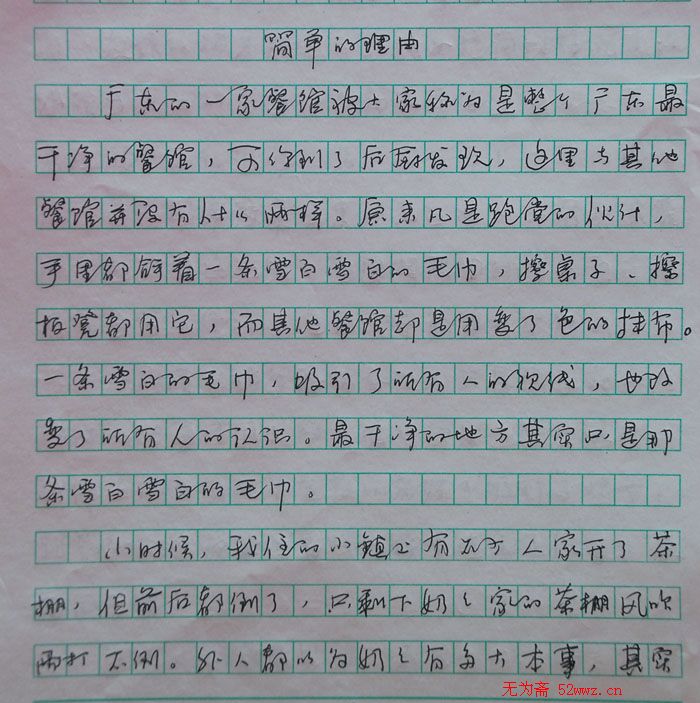 简单的理由
广东的一家餐馆被大家称为是整个广东最
干净的餐馆，可你到了后厨发现，这里与其他
餐馆并没有什么两样。原来凡是跑堂的伙计，
手里都拿着一条雪白雪白的毛巾，擦桌子、擦
板凳都用它，而其他餐馆却是用变了色的抹布。
一条雪白的毛巾，吸引了所有人的视线，也改
变了所有人的认识。最干净的地方其实只是那
条雪白雪白的毛巾。
小时候，我住的小镇上有不少人家开了茶
棚，但前后都倒了，只剩下奶奶家的茶棚风吹
雨打不倒。外人都以为奶奶有多大本事，其实
无为斋 52wwz.cn